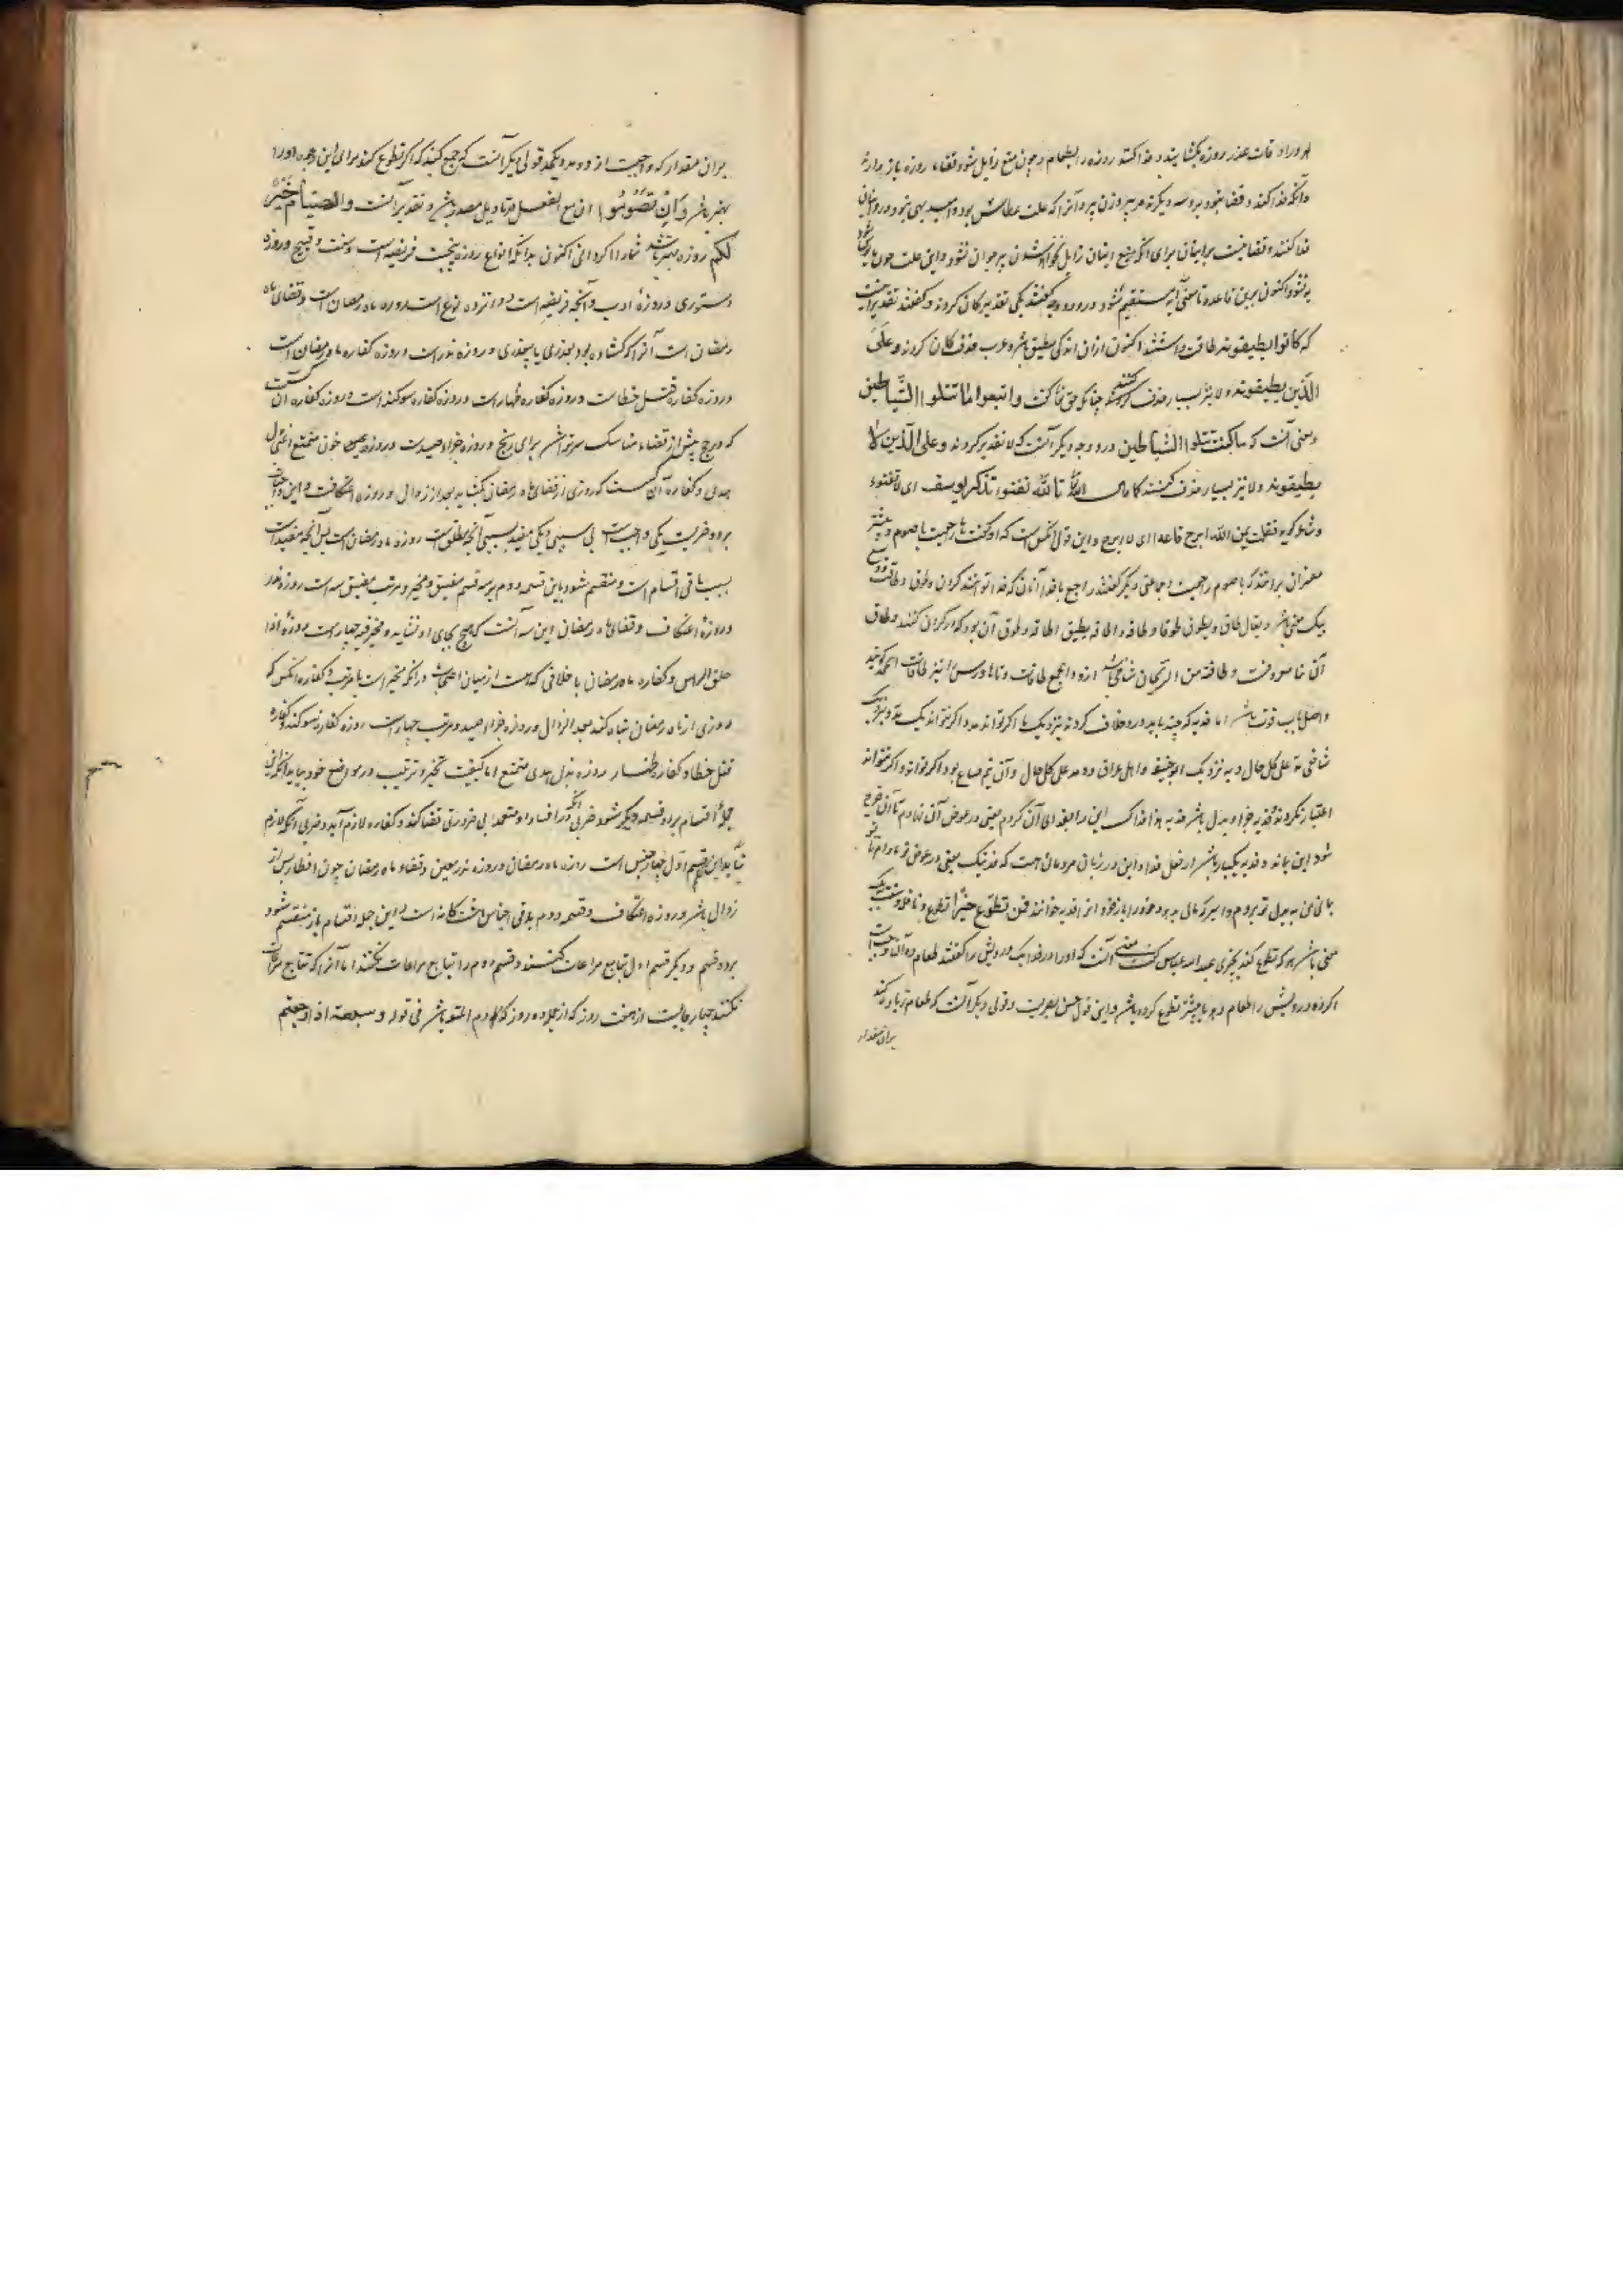 هر دو را در اوقات عذر روزه بگشایند و فدا کنند روزه را بطعام و چون منع زایل شود قضاء روزه باز دارند
و آنکه فدا کند و قضا نبود بر وی سه دیگرند مرد پیر و زن پیر و آنرا که علت عطاش بود و امید بهی نبود در و ایشان
فدا کنند و قضا نیست بر ایشان برای آنکه منع ایشان زایل نخواهد شدن پیر جوان نشود و این علت چون
به نشود اکنون برین قاعده تا معنی آیه مستقیم شود درو دو وجه گفتند یکی تقدیر کان کردند و گفتند تقدیر اینست
که کانوا یطیقونه طاقت داشتند اکنون ازان اندکی مطیق باشند و عرب حذف کان کردند و علی
الذین یطیقونه و لا نیز بسیار حذف کنند چنانکه حق تعالی گفت واتبعوا ما تتلوا الشیاطین
و معنی آنست که ما کانت تتلوا الشیاطین و درو وجه دیگر آنست که لا تقدیر کردند و علی الذین لا
یطیقونه و لا نیز بسیار حذف کنند کما قال الله تالله تفتوء تذکر یوسف ای لا تفتوء
و شاعر گوید فقلت یمین الله ابرح قاعدا ای لا ابرح و این قول آنکس است که او گفت ها راجعست با صوم و بیشتر
مفسران برانند که با صوم راجعست و جماعتی دیگر گفتند راجع با فدا آنان که فدا توانند کردن و طوق و طاقت
بیک معنی باشد و یقال طاق و یطوق طوقا و طاقه و اطاقه یطیق اطاقه و طوق آن بود که در گردن کنند و طاق
آن بنا معروفست و طاقة من الریحان شاخی باشد ازو و اجمع طاقات
و اصل باب قوت باشد اما فدیه که چند باید درو خلاف کردند نزدیک ما اگر تواند دو مد و اگر نتواند یک مد و نزدیک
شافعی مد علی کل حال و به نزدیک ابوحنیفه و اهل عراق دو مد علی کل حال و آن نیم صاع بود اگر تواند و اگر نتواند
اعتبار نکردند و فدیه جزا و بدل باشد فدیه بذا فداک این را بفدای آن کردم یعنی در عوض آن نهادم تا آن خرج
شود این بماند و فدیه یکبار باشد از فعل فدا و این در زبان مردمان هست که فدیتک یعنی در عوض تو بدادم تا تو
بمانی من به بدل تو بروم و اسیر که مالی بدهد و خود را باز خرد آنرا فدیه خوانند فمن تطوع خیرا تطوع و نافله و سنت بیک
معنی باشد هر که تطوع کند بخیری عبدالله عباس گفت معنی آنست که او را در فدا یک درویش را گفتند طعام ده آن واجبست
اگر ده درویش را طعام دهد یا بیشتر تطوع کرده باشد و این قول حسن بصریست و قولی دیگر آنست که طعام زیاده کند
بران مقدار
بران مقدار که واجبست از دو مد و یکمد قولی دیگر آنست که جمع کند که اگر تطوع کند برای این وجه او را
بهتر باشد وان تصوموا ان مع الفعل در تاویل مصدر باشد و تقدیر آنست والصیام خیر
لکم روزه بهتر باشد شما را اگر دانی اکنون بدانکه انواع روزه پنجست فریضه است و سنت و قبیح و روزه
دستوری و روزهٔ ادب و آنچه فریضه است دوانزده نوع است روزه ماه رمضان است و قضای ماه
رمضان است آنرا که گشاده بود بعذری یا بیعذری و روزه نذر است و روزه کفاره ماه رمضان است
و روزه کفاره قتل خطاست و روزه کفاره ظهار است و روزه کفاره سوگند است و روزه کفاره آن کس است
که در حج پیش از قضاء مناسک سر تراشد برای رنج و روزه جزاء صیدست و روزه خون متمتع
هدی و کفاره آن کس است که روزی از قضای ماه رمضان بگشاید بعد از زوال و روزه اعتکافست و این واجبات
بر دو ضربست یکی واجبست بی سببی و یکی مقید بسببی آنچه مطلق است روزه ماه رمضان است پس آنچه مقیدست
بسبب باقی اقسام است و منقسم شود باین قسمه دوم بر سه قسم مضیق و مخیر و مرتب مضیق سه است روزه نذر
و روزهٔ اعتکاف و قضای ماه رمضان این سه آنست که هیچ بجای او نشاید و مخیر فیه چهار است روزهٔ اذا
حلق الراس و کفاره ماه رمضان با خلافی که هست از میان اصحاب در آنکه مخیر است یا مرتب و کفاره آنکس که
روزی از ماه رمضان تباه کند بعد الزوال و روزه جزاء صید و مرتب چهار است روزه کفاره سوگند و کفاره
قتل خطا و کفاره ظهار و روزه بدل هدی متمتع اما کیفیت تخیر و ترتیب در مواضع خود بیاید
جملهٔ اقسام بر دو قسمه دیگر شود ضربی آنکه در افساد او متعمد بی ضرورتی قضا کند و کفاره لازم آید و ضربی آنکه لازم
نیاید این قسم اول چهار جنس است روزه ماه رمضان و روزه نذر معین و قضاء ماه رمضان چون افطار پس از
زوال باشد و روزه اعتکاف و قسمه دوم باقی اجناس هشت گانه است و این جمله اقسام باز منقسم شود
بر دو قسم دیگر قسم اول تتابع مراعات کنند و قسم دوم را تتابع مراعات نکنند اما آنرا که تتابع مراعات
نکنند چهار جایست از هفت روز که از جملهٔ ده روز که دم المتعه باشد فی قوله وسبعة اذا رجعتم